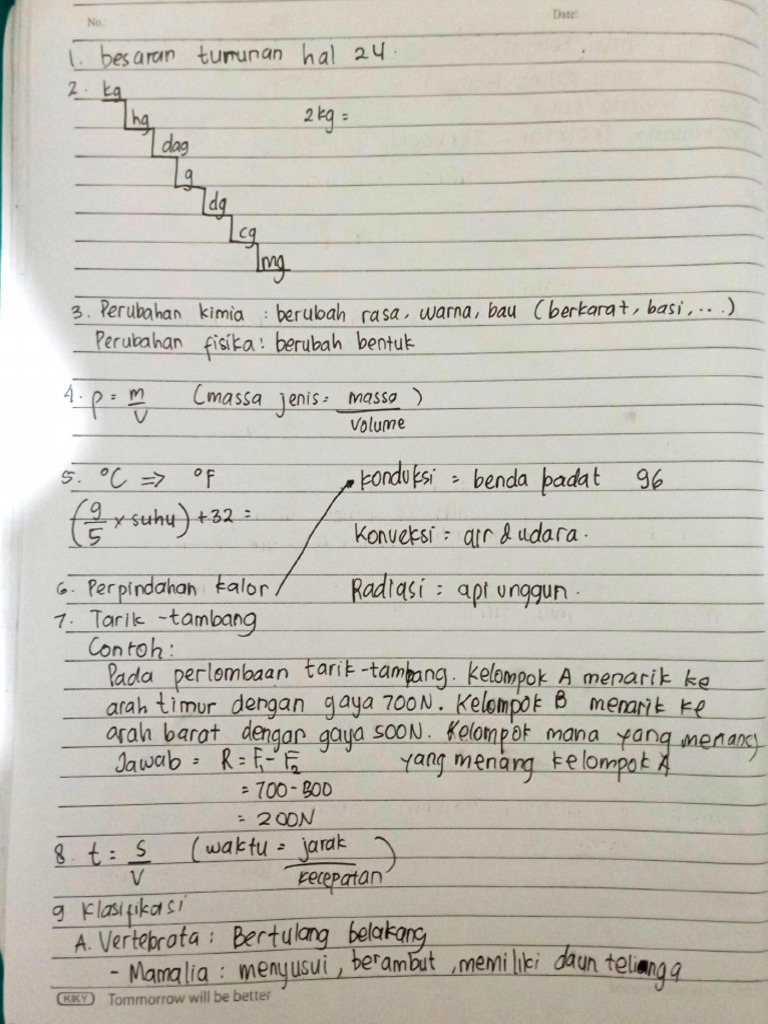 No.:
Date:
1. besaran turunan hal 24.
2. kg
hg
2kg =
dag
g
dg
cg
mg
3. Perubahan kimia : berubah rasa, warna, bau (berkarat, basi, ...)
Perubahan fisika : berubah bentuk
4. ρ = m/V (massa jenis = massa/volume)
5. °C => °F
(9/5 x suhu) + 32 =
konduksi = benda padat 96
Konveksi = air & udara.
6. Perpindahan kalor
Radiasi : api unggun.
7. Tarik - tambang
Contoh :
Pada perlombaan tarik-tambang. Kelompok A menarik ke
arah timur dengan gaya 700N. Kelompok B menarik ke
arah barat dengan gaya 500N. Kelompok mana yang menang
Jawab = R = F1 - F2
yang menang kelompok A
= 700 - 500
= 200N
8. t = s/v (waktu = jarak/kecepatan)
9 Klasifikasi
A. Vertebrata : Bertulang belakang
- Mamalia : menyusui, berambut, memiliki daun telinga
KIKY Tommorrow will be better